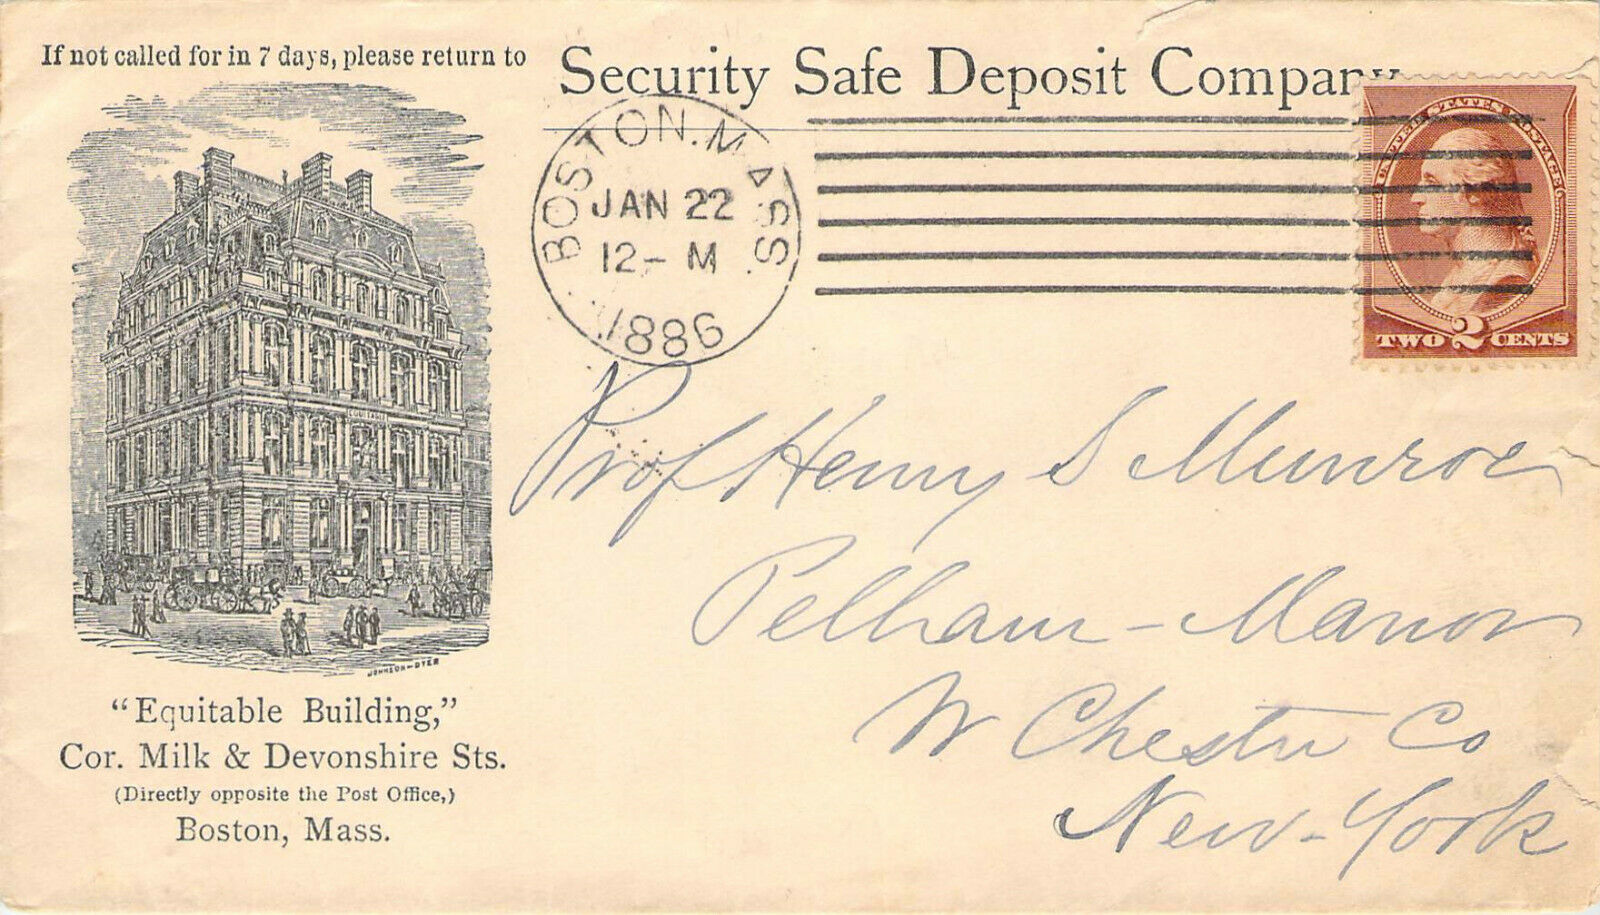 If not called for in 7 days, please return to
Security Safe Deposit Company
BOSTON. MASS.
JAN 22
12- M
1886
UNITED STATES POSTAGE
TWO 2 CENTS
EQUITABLE
JOHNSON-DYER
"Equitable Building,"
Cor. Milk & Devonshire Sts.
(Directly opposite the Post Office,)
Boston, Mass.
Prof Henry S Munroe
Pelham-Manor
W Chester Co
New-York